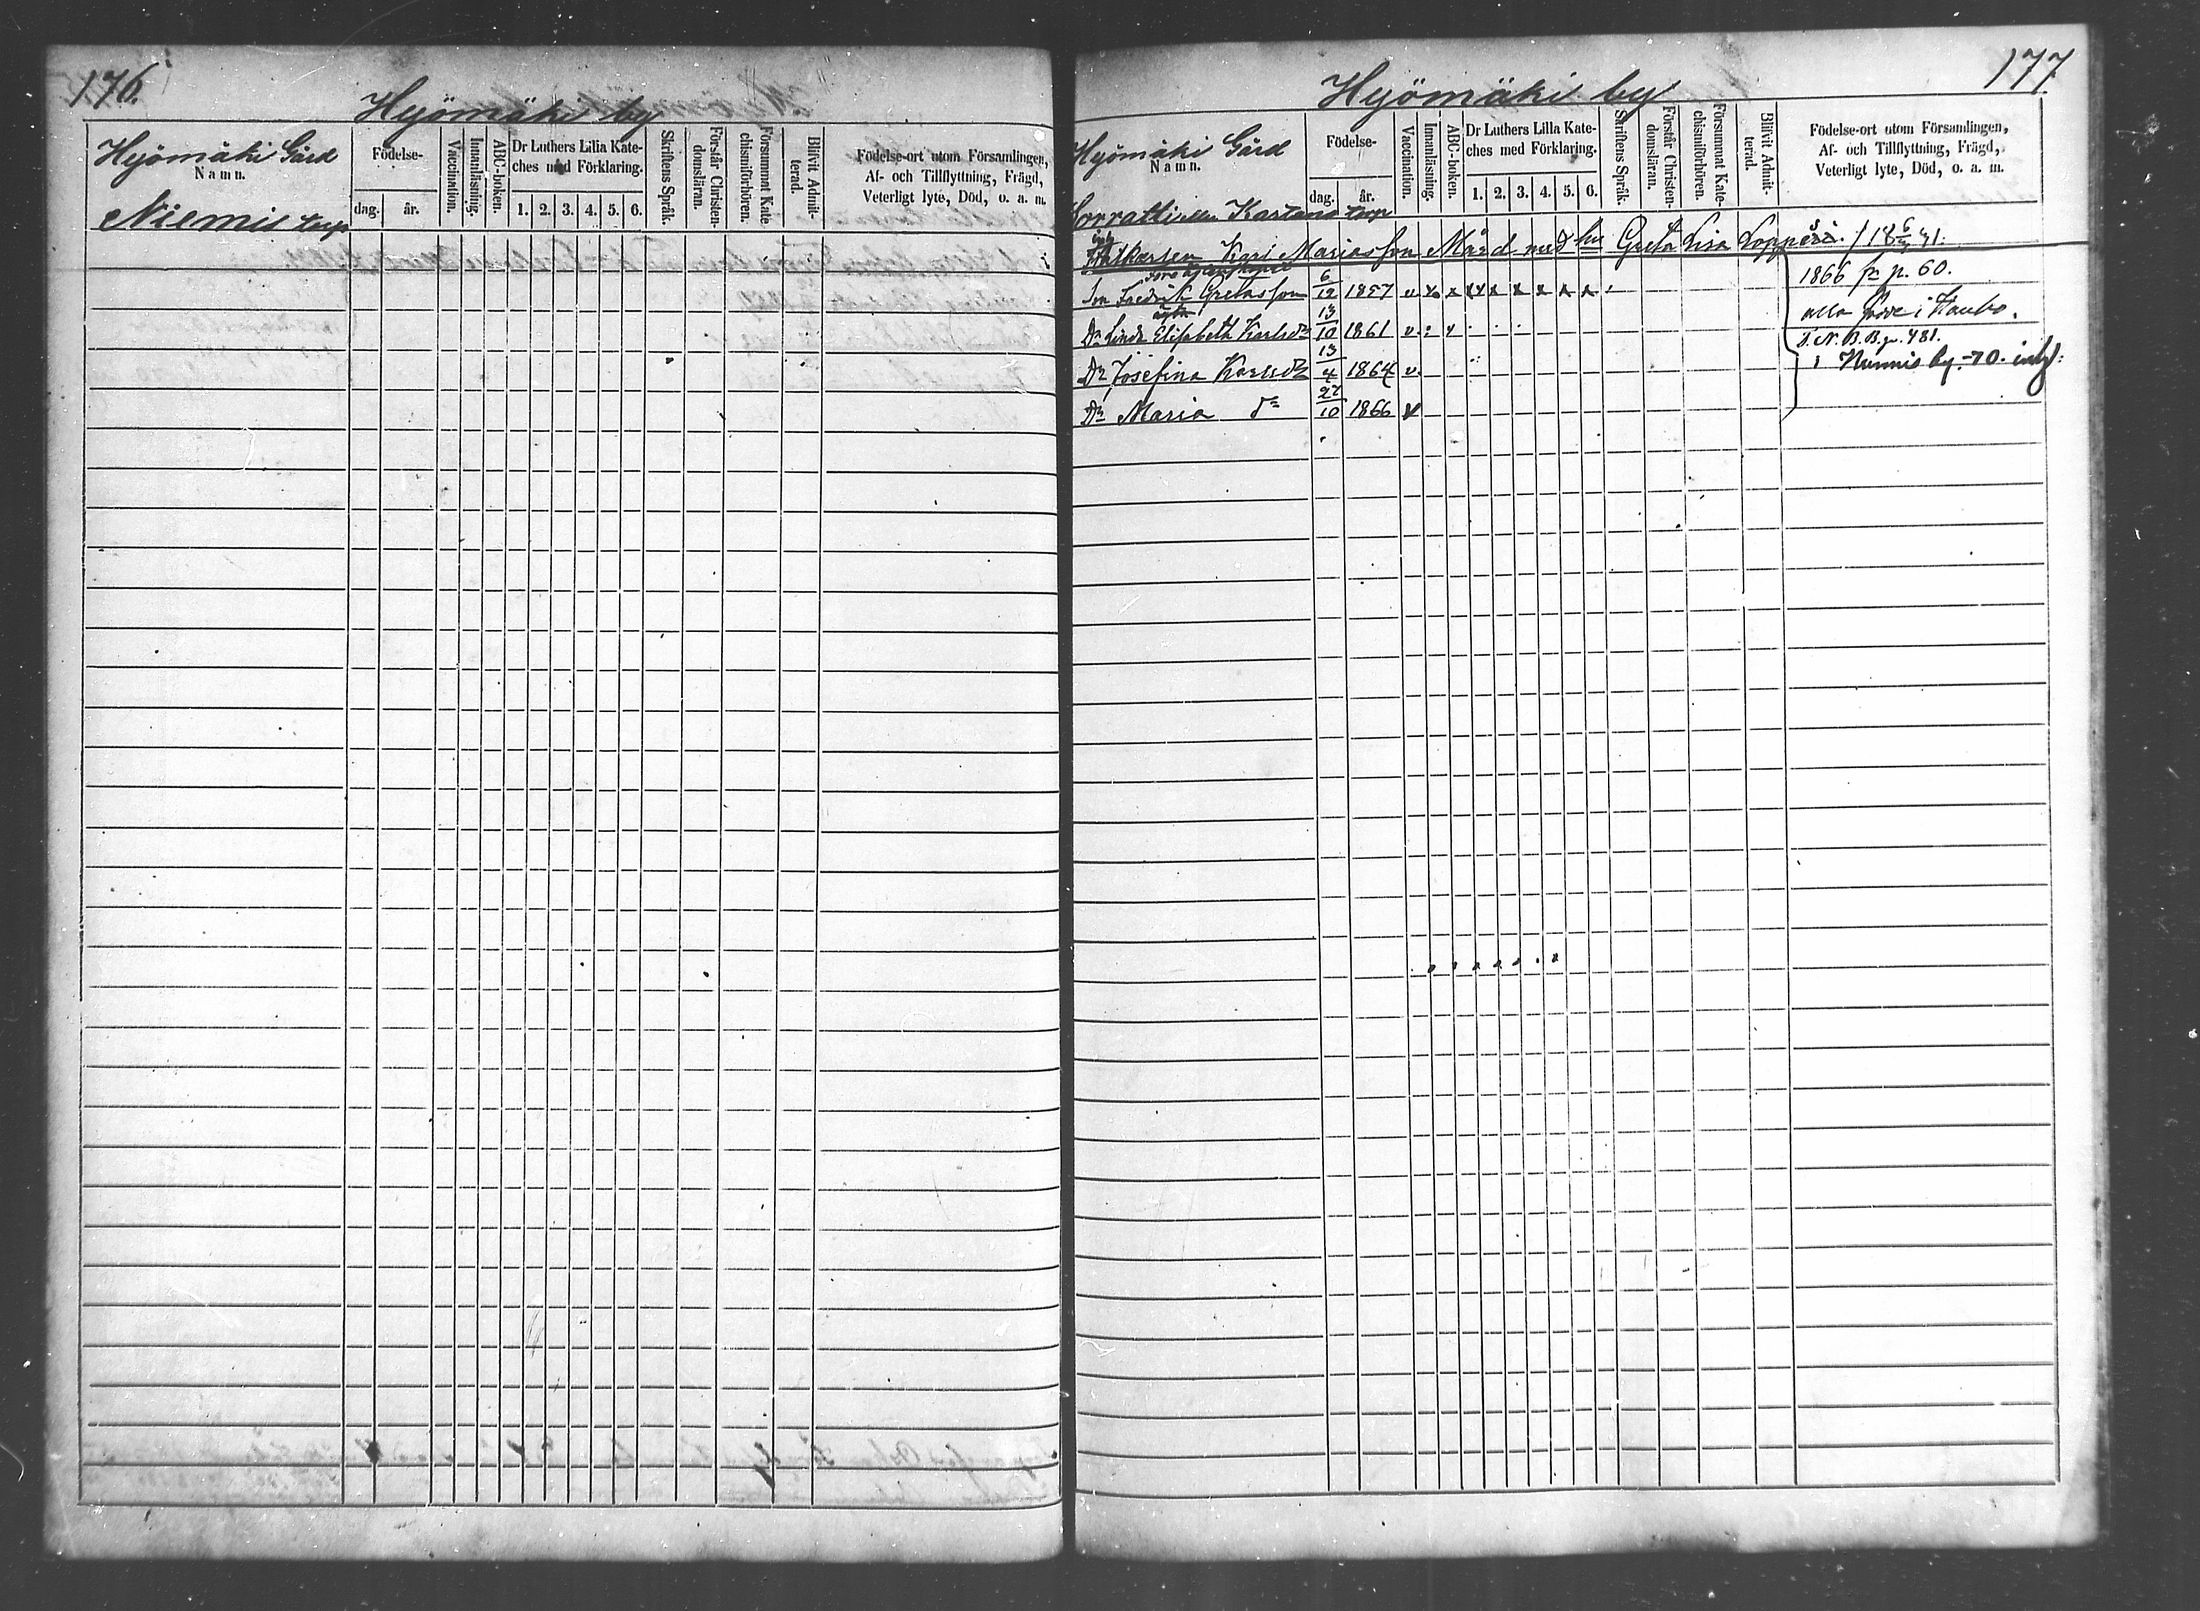 176.
Hyömäki by
Hyömäki Gård
Namn.
Niemis torp
Födelse-
dag. år.
Vaccination.
Innanläsning.
ABC-boken.
Dr Luthers Lilla Kate-
ches med Förklaring.
1. 2. 3. 4. 5. 6.
Skriftens Språk.
Förstår Christen-
domsläran.
Försummat Kate-
chismiförhören.
Blifvit Admit-
terad.
Födelse-ort utom Församlingen,
Af- och Tillflyttning, Frägd,
Veterligt lyte, Död, o. a. m.
177
Hyömäki by
Hyömäki Gård
Namn.
Kastana torp
Födelse-
dag. år.
Vaccination.
Innanläsning.
ABC-boken.
Dr Luthers Lilla Kate-
ches med Förklaring.
1. 2. 3. 4. 5. 6.
Skriftens Språk.
Förstår Christen-
domsläran.
Försummat Kate-
chismiförhören.
Blifvit Admit-
terad.
Födelse-ort utom Församlingen,
Af- och Tillflyttning, Frägd,
Veterligt lyte, Död, o. a. m.
Karl Mariasson Mård med hu Greta Lisa
Son Fredrik Gretasson 6/12 1857
1866 fr p. 60.
Dr Elisabeth Karlsdr 13/10 1861
T. N. B. B. p. 481.
Dr Josefina Karlsdr 13/4 1864 v.
i Nummis by. -70.
Dr Maria dr 27/10 1866 v